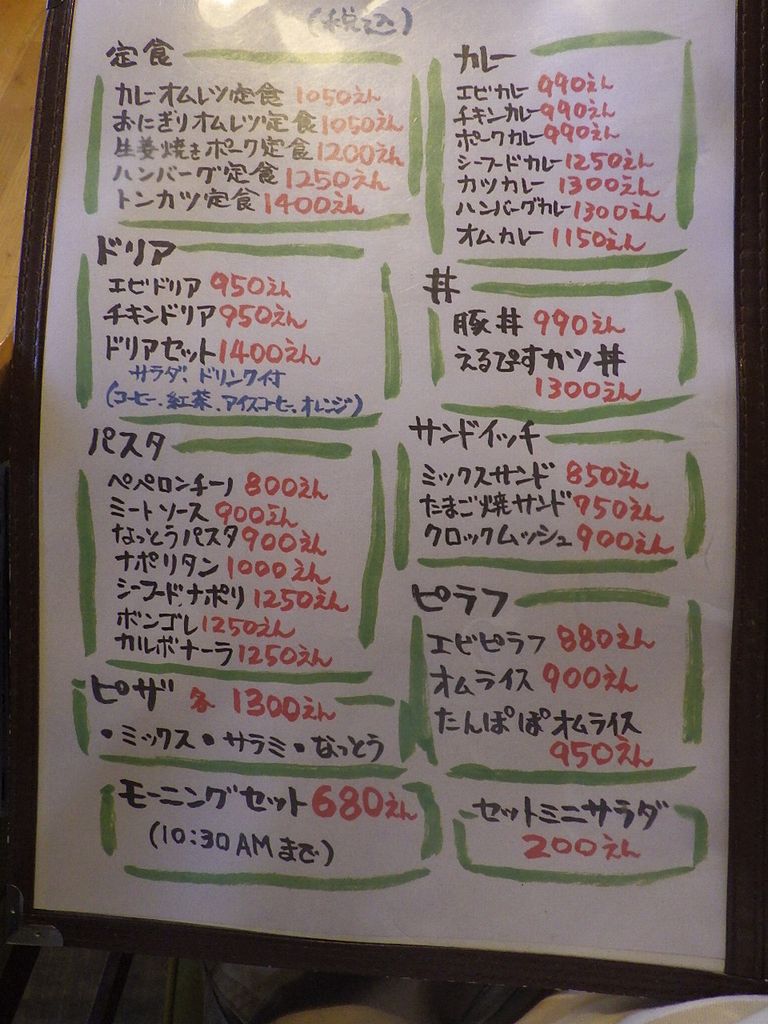 (税込)
定食
カレーオムレツ定食 1050えん
おにぎりオムレツ定食 1050えん
生姜焼きポーク定食 1200えん
ハンバーグ定食 1250えん
トンカツ定食 1400えん
ドリア
エビドリア 950えん
チキンドリア 950えん
ドリアセット 1400えん
サラダ、ドリンク付
(コーヒー、紅茶、アイスコーヒー、オレンジ)
パスタ
ペペロンチーノ 800えん
ミートソース 900えん
なっとうパスタ 900えん
ナポリタン 1000えん
シーフードナポリ 1250えん
ボンゴレ 1250えん
カルボナーラ 1250えん
ピザ 各 1300えん
・ミックス・サラミ・なっとう
モーニングセット 680えん
(10:30AMまで)
カレー
エビカレー 990えん
チキンカレー 990えん
ポークカレー 990えん
シーフードカレー 1250えん
カツカレー 1300えん
ハンバーグカレー 1300えん
オムカレー 1150えん
丼
豚丼 990えん
えるぴすカツ丼
1300えん
サンドイッチ
ミックスサンド 850えん
たまご焼サンド 750えん
クロックムッシュ 900えん
ピラフ
エビピラフ 880えん
オムライス 900えん
たんぽぽオムライス
950えん
セットミニサラダ
200えん